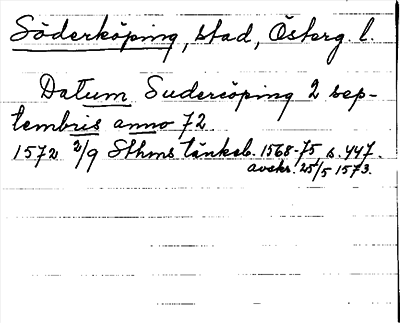 Söderköping, stad, Österg. l.
Datum Sudercöping 2 sep-
tembris anno 72
1572 2/9 Sthms tänkeb. 1568-75 s. 447.
avskr. 25/5 1573.